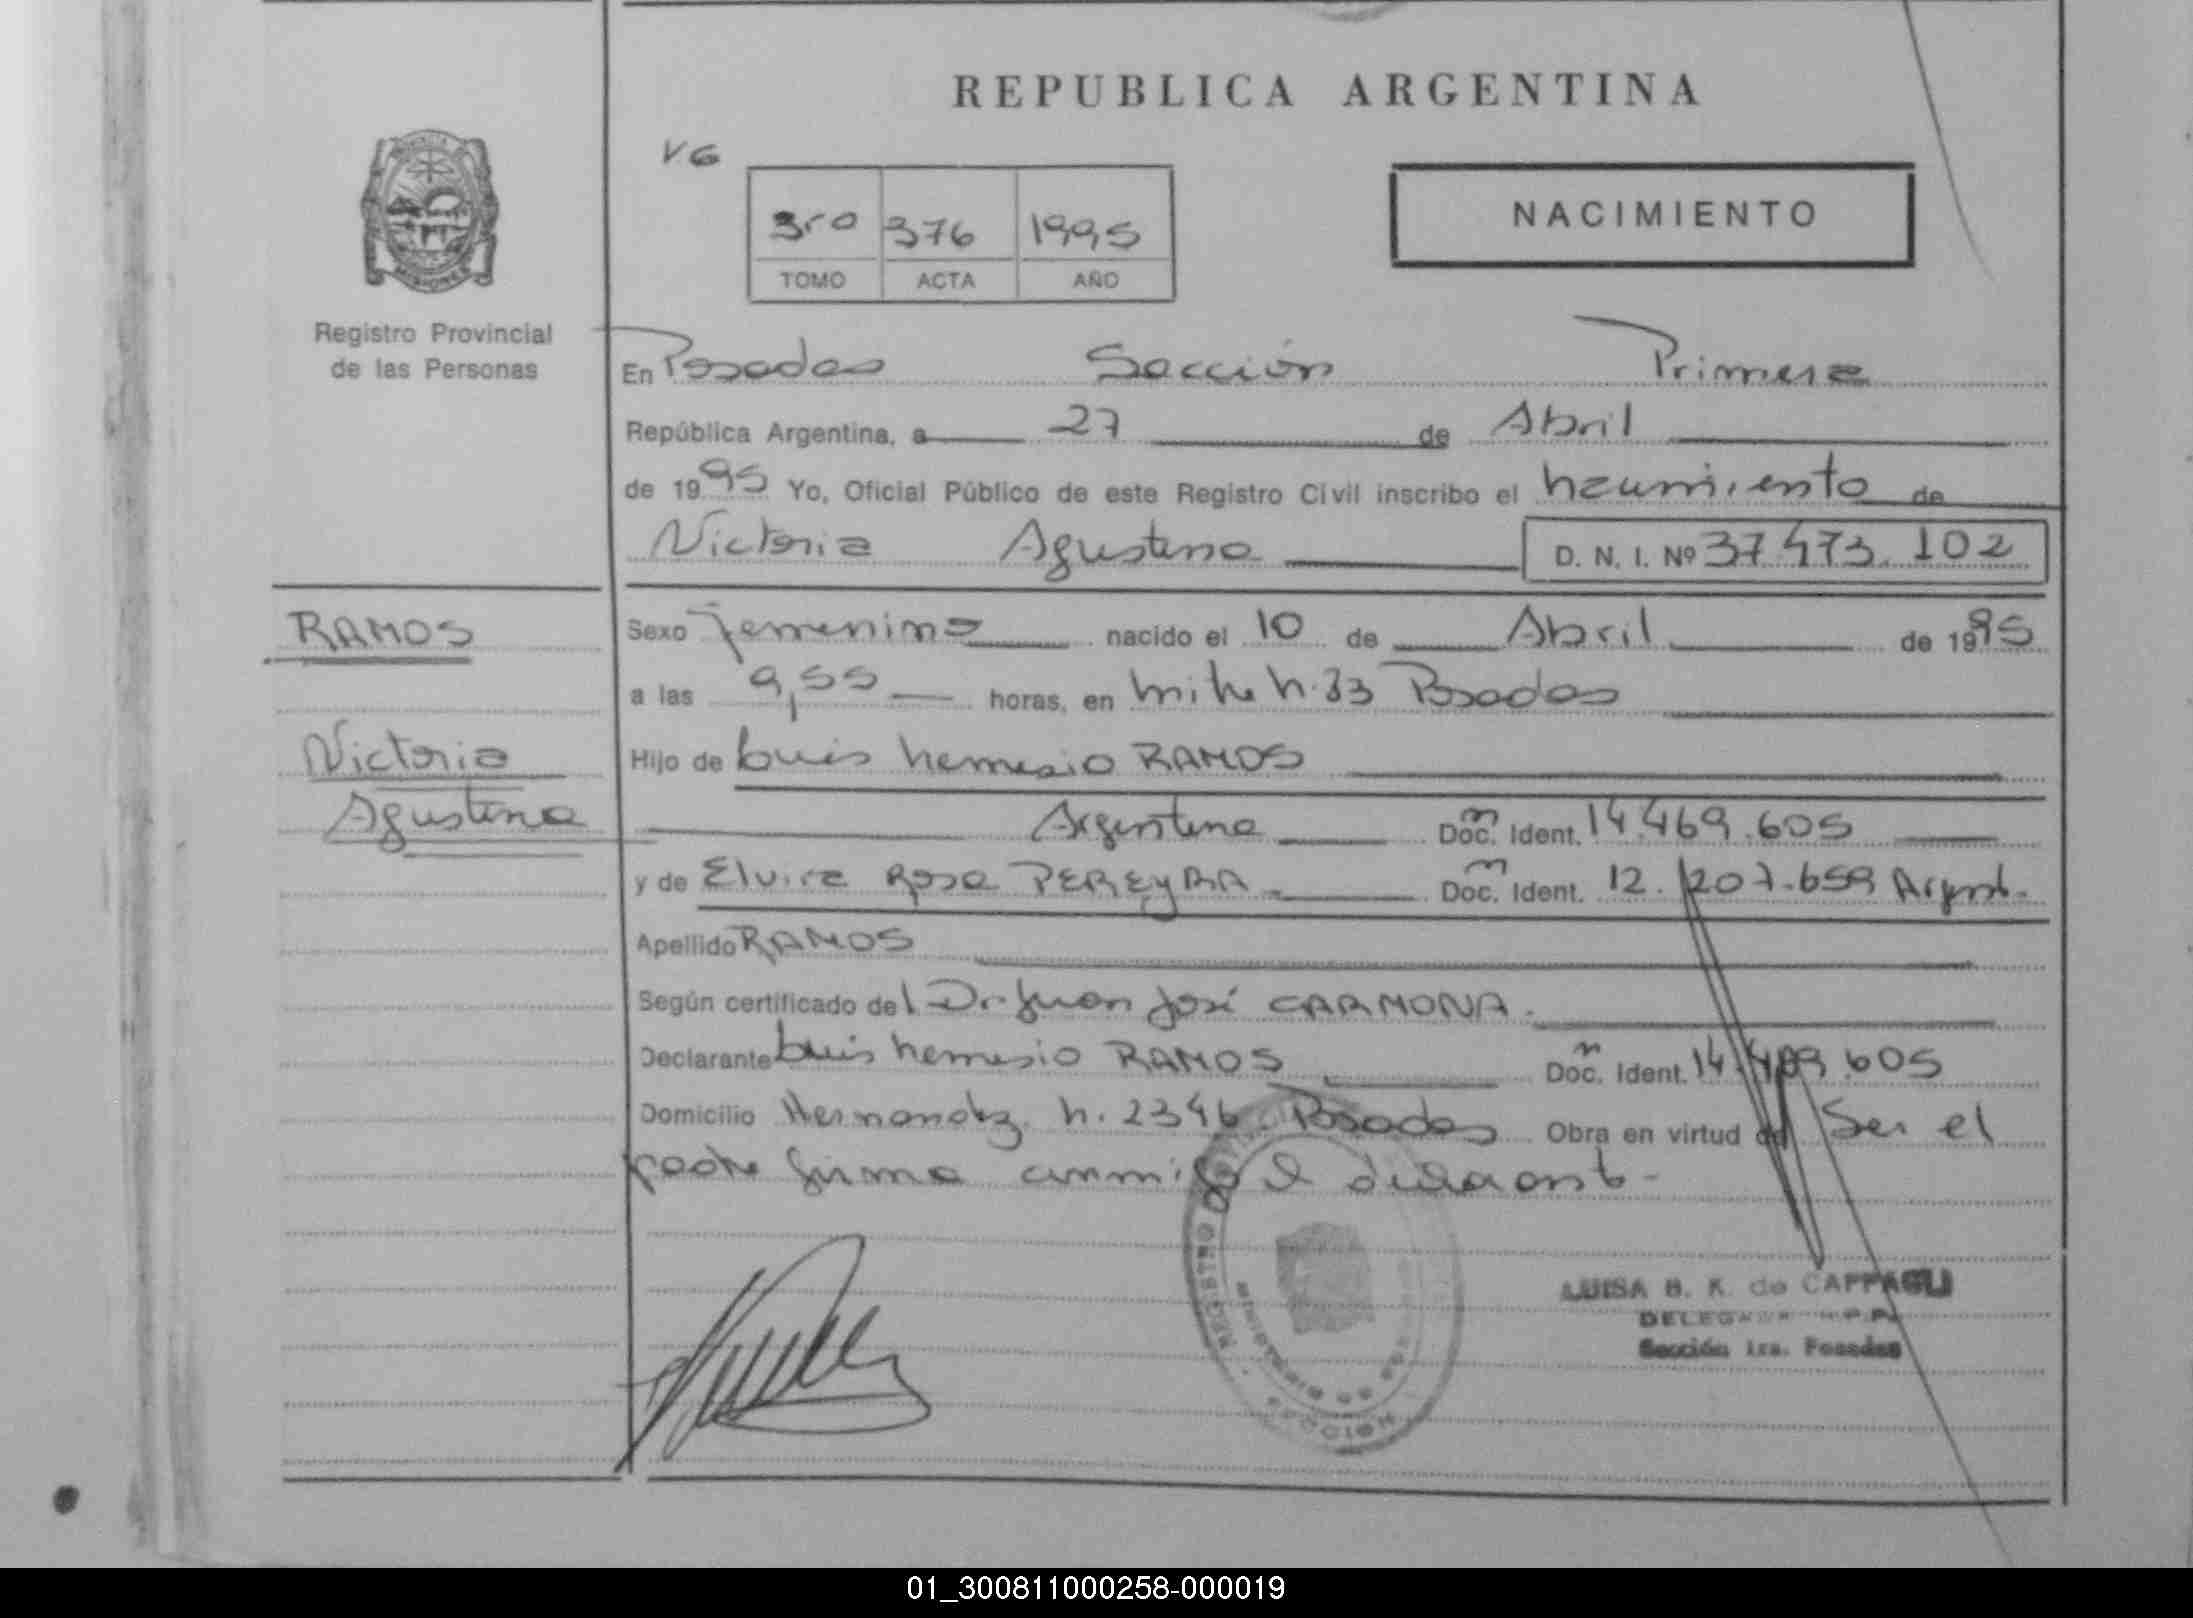 REPUBLICA ARGENTINA
VG
3ro 376 1995
TOMO ACTA AÑO
NACIMIENTO
MISIONES
Registro Provincial
de las Personas
En Posadas Sección Primera
República Argentina, a 27 de Abril
de 1995 Yo, Oficial Público de este Registro Civil inscribo el nacimiento de
Victoria Agustina D. N. I. Nº 37.473.102
RAMOS
Victoria
Agustina
Sexo femenino nacido el 10 de Abril de 1995
a las 9,55 horas, en Mitre N.33 Posadas
Hijo de Luis Nemesio RAMOS
Argentino Doc. Ident. 14.469.605
y de Elvira Rosa PEREYRA Doc. Ident. 12.207.659 Argent.
Apellido RAMOS
Según certificado del Dr. Juan José CARMONA.
Declarante Luis Nemesio RAMOS Doc. Ident. 14.469.605
Domicilio Hernandez N. 2346 Posadas Obra en virtud de Ser el
padre firma conmigo el declarante-
REGISTRO
MINISTERIO DE
SECCION
LUISA B. K. de CAPPAGLI
Sección 1ra. Posadas
01_300811000258-000019